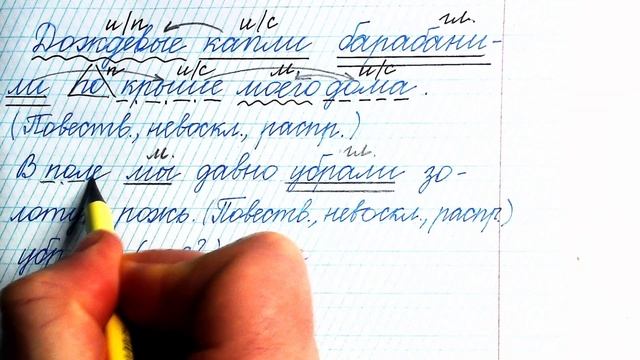 и/п и/с гл.
Дождевые капли барабани-
п и/с м. и/с
ли по крыше моего дома.
(Повеств., невоскл., распр.)
м. гл.
В поле мы давно убрали зо-
рожь. (Повеств., невоскл., распр.)